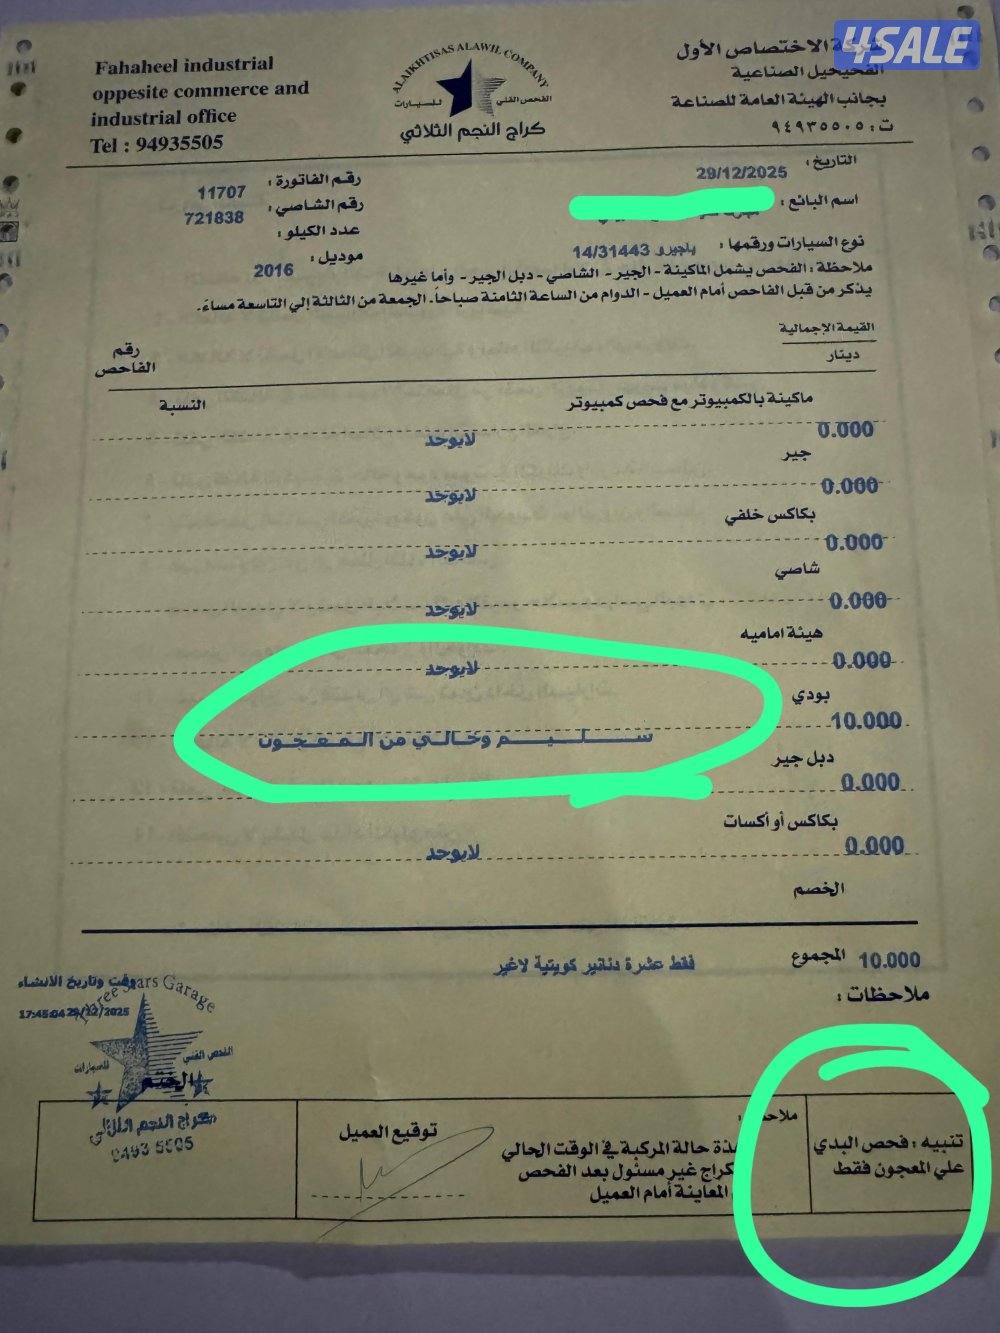 4SALE
Fahaheel industrial
oppesite commerce and
industrial office
Tel : 94935505
ALAIKHTISAS ALAWIL COMPANY
الفحص الفني للسيارات
كراج النجم الثلاثي
شركة الاختصاص الأول
الفحيحيل الصناعية
بجانب الهيئة العامة للصناعة
ت : ٩٤٩٣٥٥٠٥
التاريخ : 29/12/2025
رقم الفاتورة : 11707
اسم البائع :
رقم الشاصي : 721838
عدد الكيلو :
نوع السيارات ورقمها : باجيرو 14/31443
موديل : 2016
ملاحظة : الفحص يشمل الماكينة - الجير - الشاصي - دبل الجير - وأما غيرها
يذكر من قبل الفاحص أمام العميل - الدوام من الساعة الثامنة صباحاً - الجمعة من الثالثة إلي التاسعة مساءً.
القيمة الإجمالية
دينار
رقم
الفاحص
ماكينة بالكمبيوتر مع فحص كمبيوتر
النسبة
0.000 لايوجد
جير
0.000 لايوجد
بكاكس خلفي
0.000 لايوجد
شاصي
0.000 لايوجد
هيئة اماميه
0.000 لايوجد
بودي
10.000 سليم وخالي من المعجون
دبل جير
0.000
بكاكس أو أكسات
0.000 لايوجد
الخصم
المجموع 10.000 فقط عشرة دنانير كويتية لاغير
ملاحظات :
وقت وتاريخ الانشاء
17:45:04 29/12/2025
Three Stars Garage
الفحص الفني للسيارات
الختم
كراج النجم الثلاثي
9493 5505
تنبيه : فحص البدي
علي المعجون فقط
حالة المركبة في الوقت الحالي
غير مسئول بعد الفحص
المعاينة أمام العميل
توقيع العميل